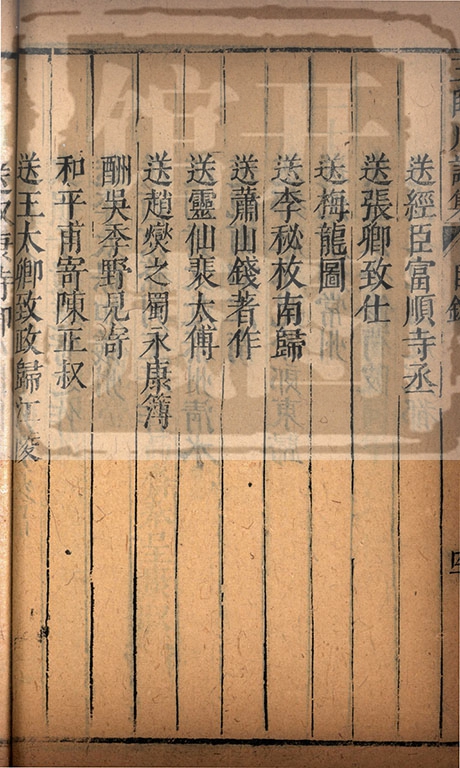 送經臣富順寺丞
送張卿致仕
送梅龍圖
送李秘校南歸
送蕭山錢著作
送靈仙裴太傅
送趙燮之蜀永康簿
酬吳季野見寄
和平甫寄陳正叔
送王太卿致政歸江陵